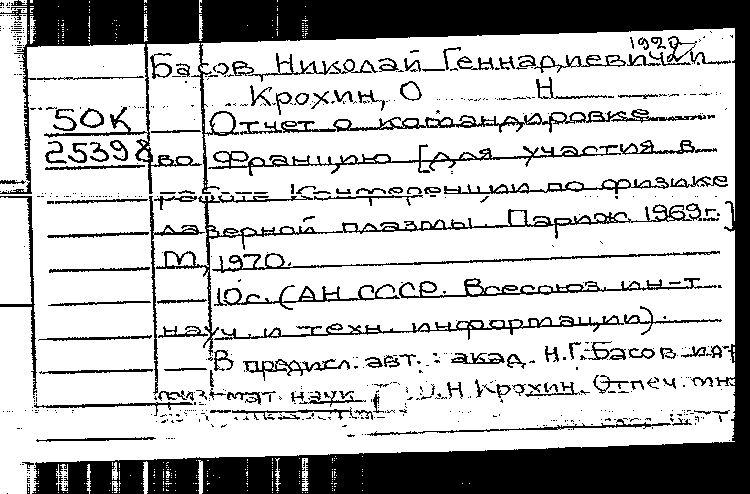 1920
Басов, Николай Геннадиевич и
Крохин, О Н
50К Отчет о командировке
25398 во Францию [для участия в
работе Конференции по физике
лазерной плазмы. Париж 1969г.]
М, 1970.
10с. (АН СССР. Всесоюз. ин-т
науч. и техн. информации).
В предисл. авт.: акад. Н.Г. Басов и
физ-мат. наук О.Н Крохин. Отпеч.